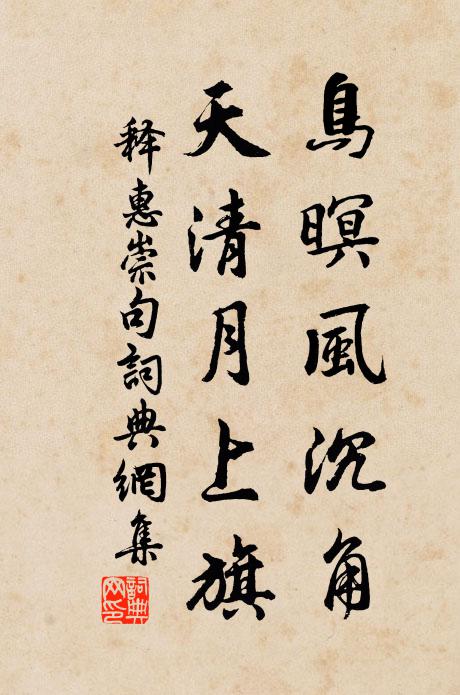 島暝風沉角
天清月上旗
释惠崇句詞典網集
詞典网印